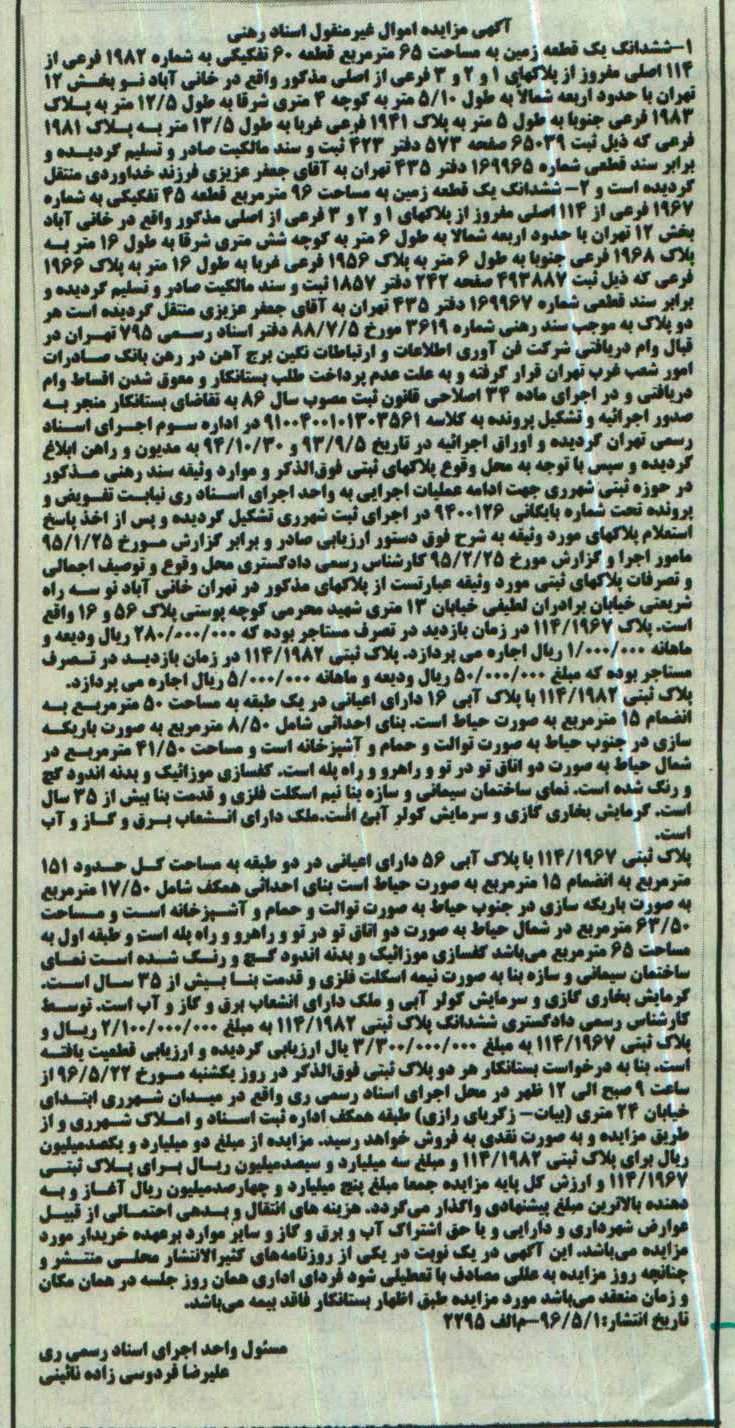 آگهی مزایده اموال غیرمنقول اسناد رهنی
۱-ششدانگ یک قطعه زمین به مساحت ۶۵ مترمربع قطعه ۶۰ تفکیکی به شماره ۱۹۸۲ فرعی از
۱۱۴ اصلی مفروز از پلاکهای ۱ و ۲ و ۳ فرعی از اصلی مذکور واقع در خانی آباد نو بخش ۱۲
تهران با حدود اربعه شمالاً به طول ۵/۱۰ متر به کوچه ۴ متری شرقا به طول ۱۲/۵ متر به پلاک
۱۹۸۳ فرعی جنوبا به طول ۵ متر به پلاک ۱۹۴۱ فرعی غربا به طول ۱۳/۵ متر به پلاک ۱۹۸۱
فرعی که ذیل ثبت ۶۵۰۳۹ صفحه ۵۷۳ دفتر ۴۲۳ ثبت و سند مالکیت صادر و تسلیم گردیده و
برابر سند قطعی شماره ۱۶۹۹۶۵ دفتر ۴۳۵ تهران به آقای جعفر عزیزی فرزند خداوردی منتقل
گردیده است و ۲- ششدانگ یک قطعه زمین به مساحت ۹۶ مترمربع قطعه ۴۵ تفکیکی به شماره
۱۹۶۷ فرعی از ۱۱۴ اصلی مفروز از پلاکهای ۱ و ۲ و ۳ فرعی از اصلی مذکور واقع در خانی آباد
بخش ۱۲ تهران با حدود اربعه شمالا به طول ۶ متر به کوچه شش متری شرقا به طول ۱۶ متر به
پلاک ۱۹۶۸ فرعی جنوبا به طول ۶ متر به پلاک ۱۹۵۶ فرعی غربا به طول ۱۶ متر به پلاک ۱۹۶۶
فرعی که ذیل ثبت ۴۹۳۸۸۷ صفحه ۲۴۲ دفتر ۱۸۵۷ ثبت و سند مالکیت صادر و تسلیم گردیده و
برابر سند قطعی شماره ۱۶۹۹۶۷ دفتر ۴۳۵ تهران به آقای جعفر عزیزی منتقل گردیده است هر
دو پلاک به موجب سند رهنی شماره ۳۶۱۹ مورخ ۸۸/۷/۵ دفتر اسناد رسمی ۷۹۵ تهران در
قبال وام دریافتی شرکت فن آوری اطلاعات و ارتباطات نگین برج آهن در رهن بانک صادرات
امور شعب غرب تهران قرار گرفته و به علت عدم پرداخت طلب بستانکار و معوق شدن اقساط وام
دریافتی و در اجرای ماده ۳۴ اصلاحی قانون ثبت مصوب سال ۸۶ به تقاضای بستانکار منجر به
صدور اجرائیه و تشکیل پرونده به کلاسه ۹۱۰۰۴۰۰۱۰۱۳۰۳۵۶۱ در اداره سوم اجرای اسناد
رسمی تهران گردیده و اوراق اجرائیه در تاریخ ۹۳/۹/۵ و ۹۴/۱۰/۳۰ به مدیون و راهن ابلاغ
گردیده و سپس با توجه به محل وقوع پلاکهای ثبتی فوق‌الذکر و موارد وثیقه سند رهنی مذکور
در حوزه ثبتی شهرری جهت ادامه عملیات اجرایی به واحد اجرای اسناد ری نیابت تفویض و
پرونده تحت شماره بایگانی ۹۴۰۰۱۲۶ در اجرای ثبت شهرری تشکیل گردیده و پس از اخذ پاسخ
استعلام پلاکهای مورد وثیقه به شرح فوق دستور ارزیابی صادر و برابر گزارش مورخ ۹۵/۱/۲۵
مامور اجرا و گزارش مورخ ۹۵/۲/۲۵ کارشناس رسمی دادگستری محل وقوع و توصیف اجمالی
و تصرفات پلاکهای ثبتی مورد وثیقه عبارتست از پلاکهای مذکور در تهران خانی آباد نو سه راه
شریعتی خیابان برادران لطیفی خیابان ۱۳ متری شهید محرمی کوچه پوستی پلاک ۵۶ و ۱۶ واقع
است. پلاک ۱۱۴/۱۹۶۷ در زمان بازدید در تصرف مستاجر بوده که ۲۸۰/۰۰۰/۰۰۰ ریال ودیعه و
ماهانه ۱/۰۰۰/۰۰۰ ریال اجاره می پردازد. پلاک ثبتی ۱۱۴/۱۹۸۲ در زمان بازدید در تصرف
مستاجر بوده که مبلغ ۵۰/۰۰۰/۰۰۰ ریال ودیعه و ماهانه ۵/۰۰۰/۰۰۰ ریال اجاره می پردازد.
پلاک ثبتی ۱۱۴/۱۹۸۲ با پلاک آبی ۱۶ دارای اعیانی در یک طبقه به مساحت ۵۰ مترمربع به
انضمام ۱۵ مترمربع به صورت حیاط است. بنای احداثی شامل ۸/۵۰ مترمربع به صورت باریکه
سازی در جنوب حیاط به صورت توالت و حمام و آشپزخانه است و مساحت ۴۱/۵۰ مترمربع در
شمال حیاط به صورت دو اتاق تو در تو و راهرو و راه پله است. کفسازی موزائیک و بدنه اندود گچ
و رنگ شده است. نمای ساختمان سیمانی و سازه بنا نیم اسکلت فلزی و قدمت بنا بیش از ۳۵ سال
است. گرمایش بخاری گازی و سرمایش کولر آبی است.ملک دارای انشعاب برق و گاز و آب
است.
پلاک ثبتی ۱۱۴/۱۹۶۷ با پلاک آبی ۵۶ دارای اعیانی در دو طبقه به مساحت کل حدود ۱۵۱
مترمربع به انضمام ۱۵ مترمربع به صورت حیاط است بنای احداثی همکف شامل ۱۷/۵۰ مترمربع
به صورت باریکه سازی در جنوب حیاط به صورت توالت و حمام و آشپزخانه است و مساحت
۶۳/۵۰ مترمربع در شمال حیاط به صورت دو اتاق تو در تو و راهرو و راه پله است و طبقه اول به
مساحت ۶۵ مترمربع می‌باشد کفسازی موزائیک و بدنه اندود گچ و رنگ شده است نمای
ساختمان سیمانی و سازه بنا به صورت نیمه اسکلت فلزی و قدمت بنا بیش از ۳۵ سال است.
گرمایش بخاری گازی و سرمایش کولر آبی و ملک دارای انشعاب برق و گاز و آب است. توسط
کارشناس رسمی دادگستری ششدانگ پلاک ثبتی ۱۱۴/۱۹۸۲ به مبلغ ۲/۱۰۰/۰۰۰/۰۰۰ ریال و
پلاک ثبتی ۱۱۴/۱۹۶۷ به مبلغ ۳/۳۰۰/۰۰۰/۰۰۰ یال ارزیابی گردیده و ارزیابی قطعیت یافته
است. بنا به درخواست بستانکار هر دو پلاک ثبتی فوق‌الذکر در روز یکشنبه مورخ ۹۶/۵/۲۲ از
ساعت ۹ صبح الی ۱۲ ظهر در محل اجرای اسناد رسمی ری واقع در میدان شهرری ابتدای
خیابان ۲۴ متری (بیات- زکریای رازی) طبقه همکف اداره ثبت اسناد و املاک شهرری و از
طریق مزایده و به صورت نقدی به فروش خواهد رسید. مزایده از مبلغ دو میلیارد و یکصدمیلیون
ریال برای پلاک ثبتی ۱۱۴/۱۹۸۲ و مبلغ سه میلیارد و سیصدمیلیون ریال برای پلاک ثبتی
۱۱۴/۱۹۶۷ و ارزش کل پایه مزایده جمعا مبلغ پنج میلیارد و چهارصدمیلیون ریال آغاز و به
دهنده بالاترین مبلغ پیشنهادی واگذار می‌گردد. هزینه های انتقال و بدهی احتمالی از قبیل
عوارض شهرداری و دارایی و یا حق اشتراک آب و برق و گاز و سایر موارد برعهده خریدار مورد
مزایده می‌باشد. این آگهی در یک نوبت در یکی از روزنامه‌های کثیرالانتشار محلی منتشر و
چنانچه روز مزایده به عللی مصادف با تعطیلی شود فردای اداری همان روز جلسه در همان مکان
و زمان منعقد می‌باشد مورد مزایده طبق اظهار بستانکار فاقد بیمه می‌باشد.
تاریخ انتشار:۹۶/۵/۱-م‌الف ۲۲۹۵
مسئول واحد اجرای اسناد رسمی ری
علیرضا فردوسی زاده نائینی